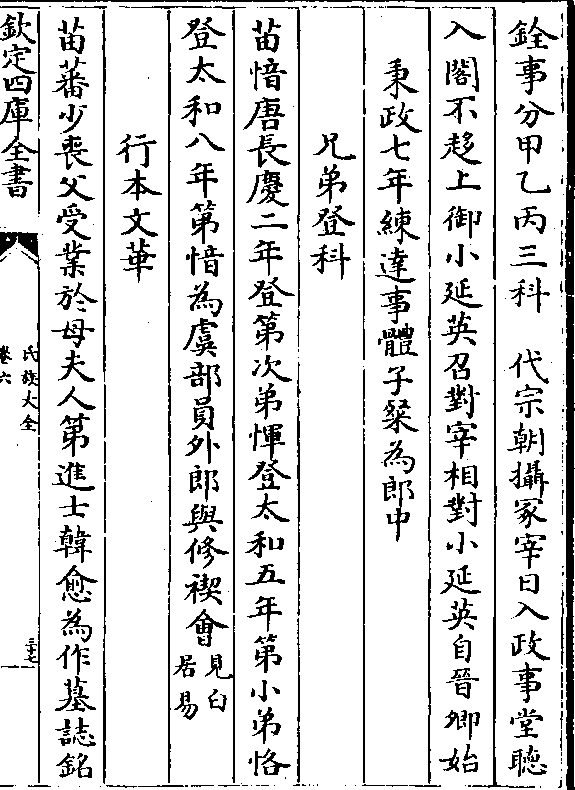 銓事分甲乙丙三科　代宗朝攝冢宰日入政事堂聽
入閣不趍上御小延英召對宰相對小延英自晉卿始
秉政七年練達事體子粲為郎中
兄弟登科
苗愔唐長慶二年登第次弟惲登太和五年第小弟恪
登太和八年第愔為虞部員外郎與修禊會見白居易
行本文華
苗蕃少喪父受業於母夫人第進士韓愈為作墓誌銘
欽定四庫全書
氏族大全
卷六
三十七